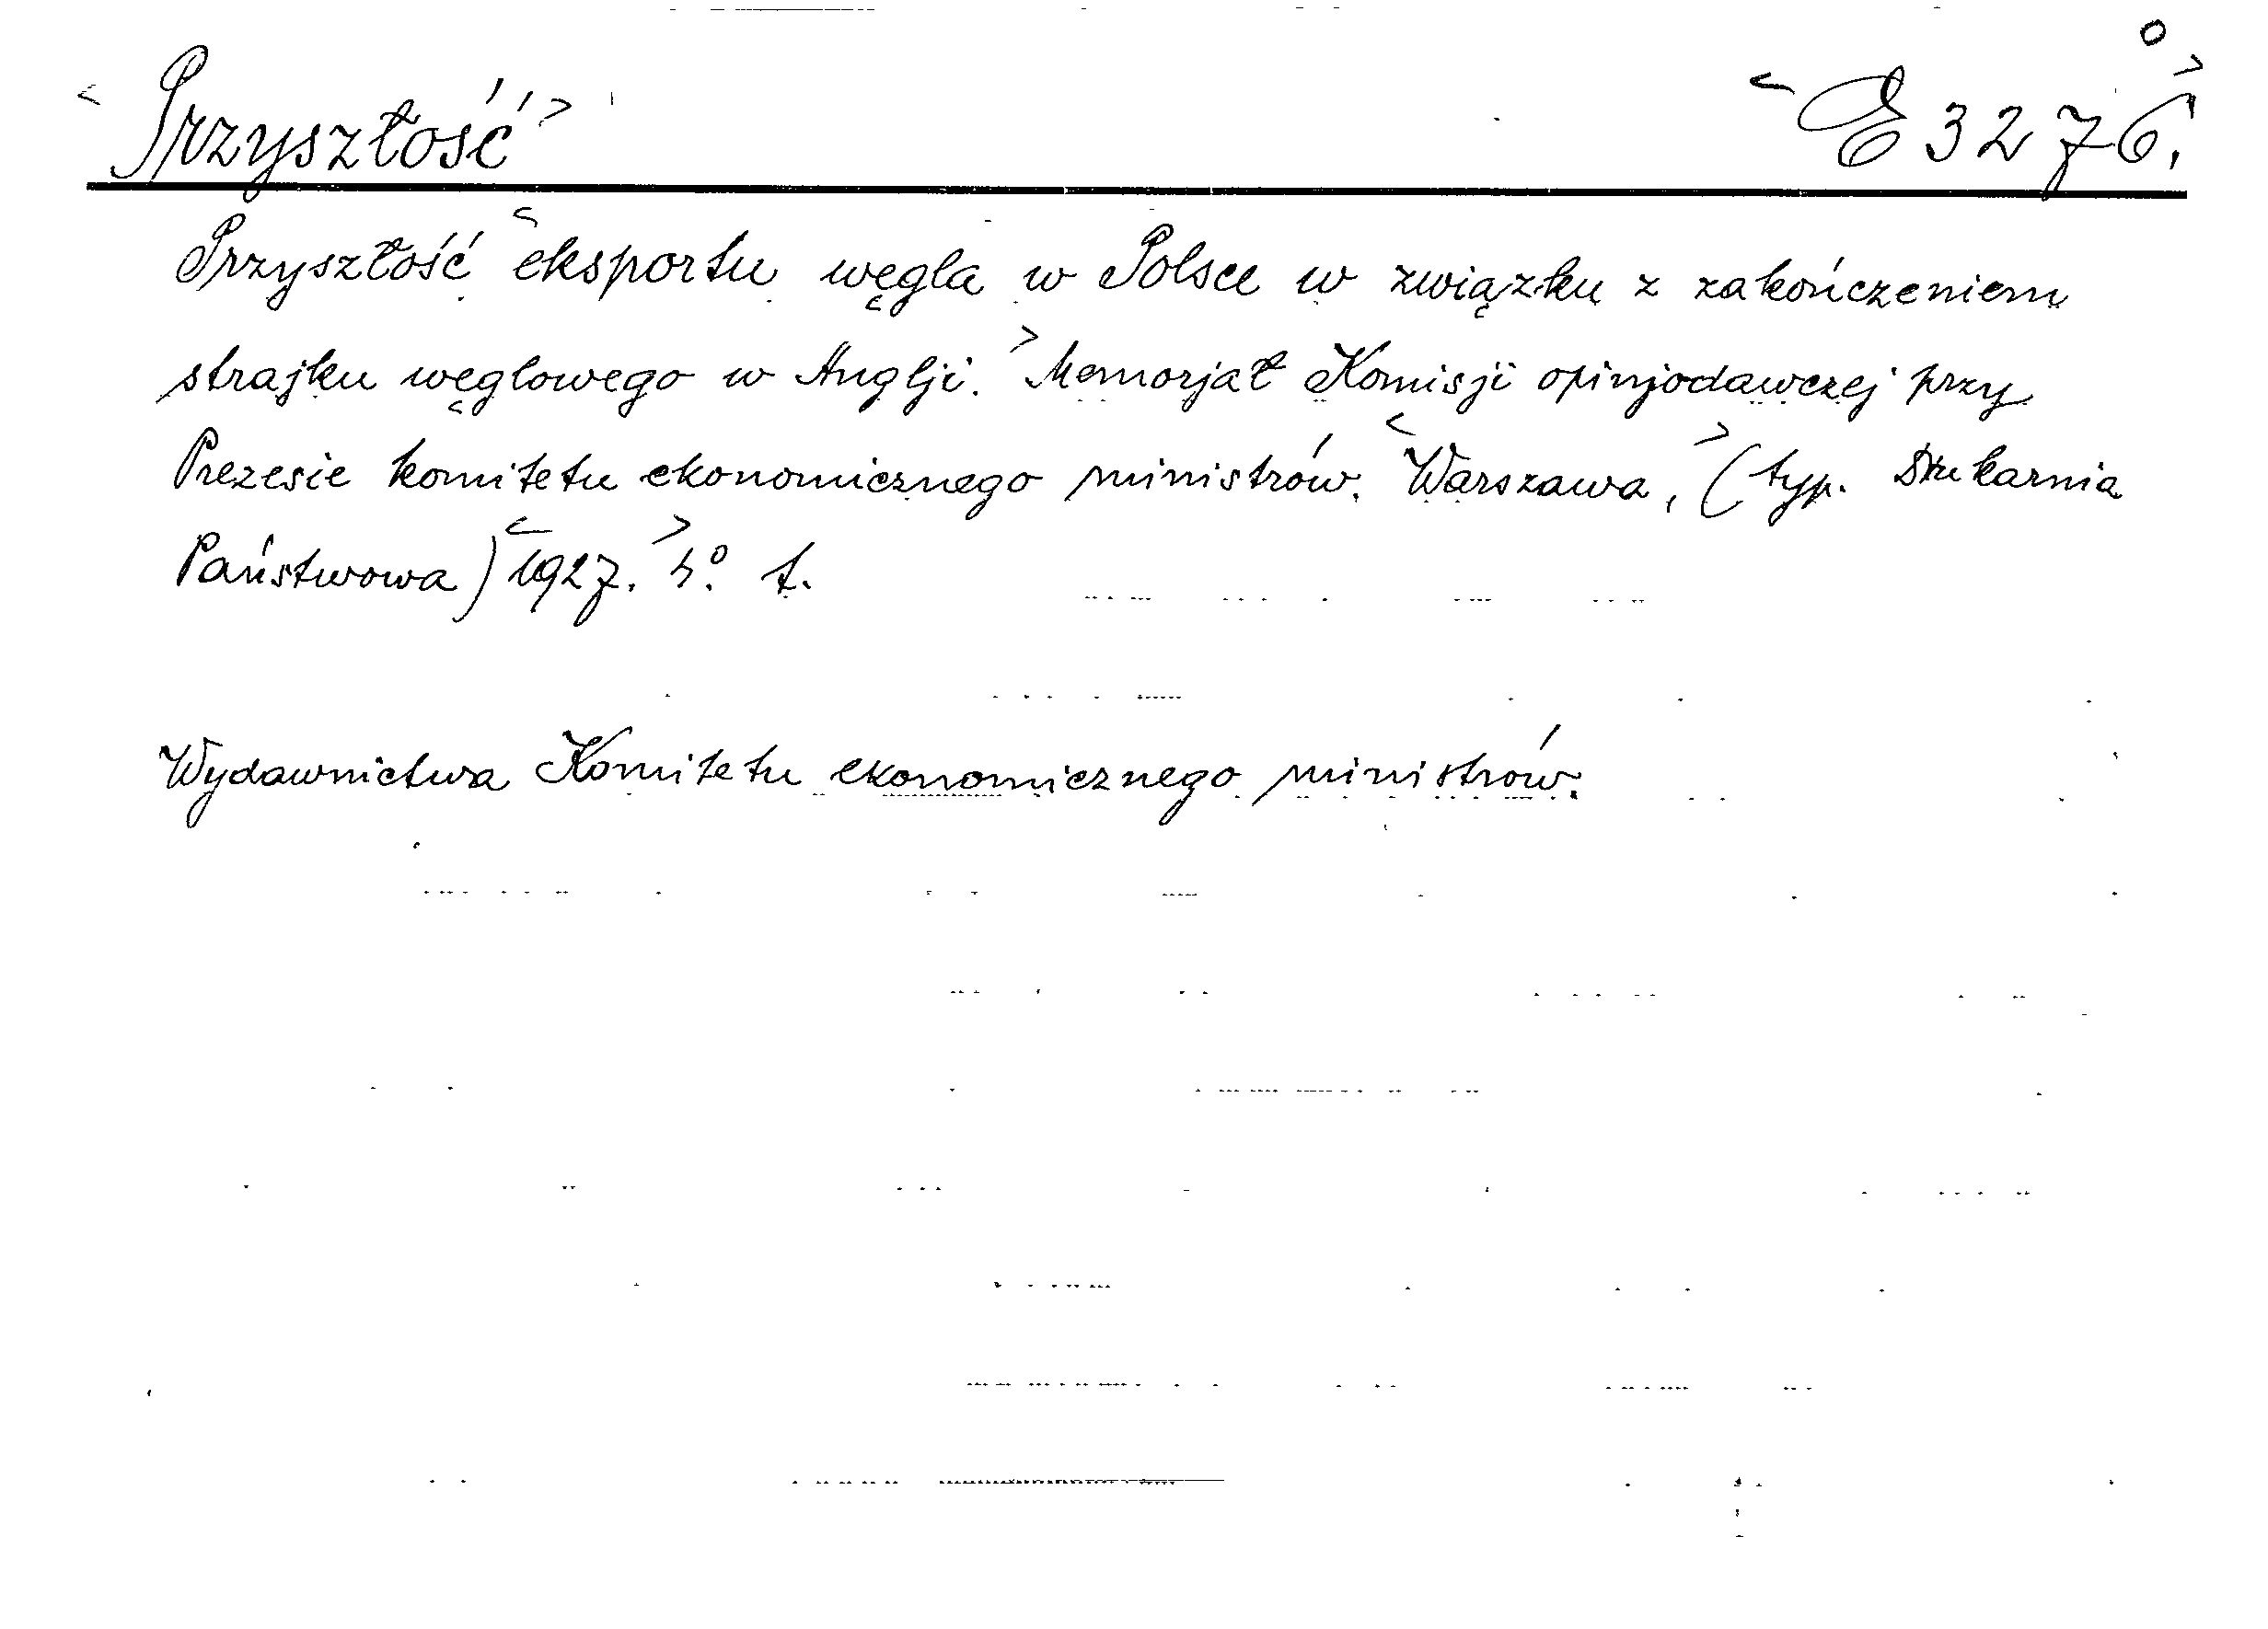 <Przyszłość> <E 3276.>
Przyszłość <eksportu węgla w Polsce w związku z zakończeniem
strajku węglowego w Anglji.> Memorjał Komisji opinjodawczej przy
Prezesie komitetu ekonomicznego ministrów. <Warszawa,> (typ. Drukarnia
Państwowa) <1927.> 4º.
Wydawnictwa Komitetu ekonomicznego ministrów.